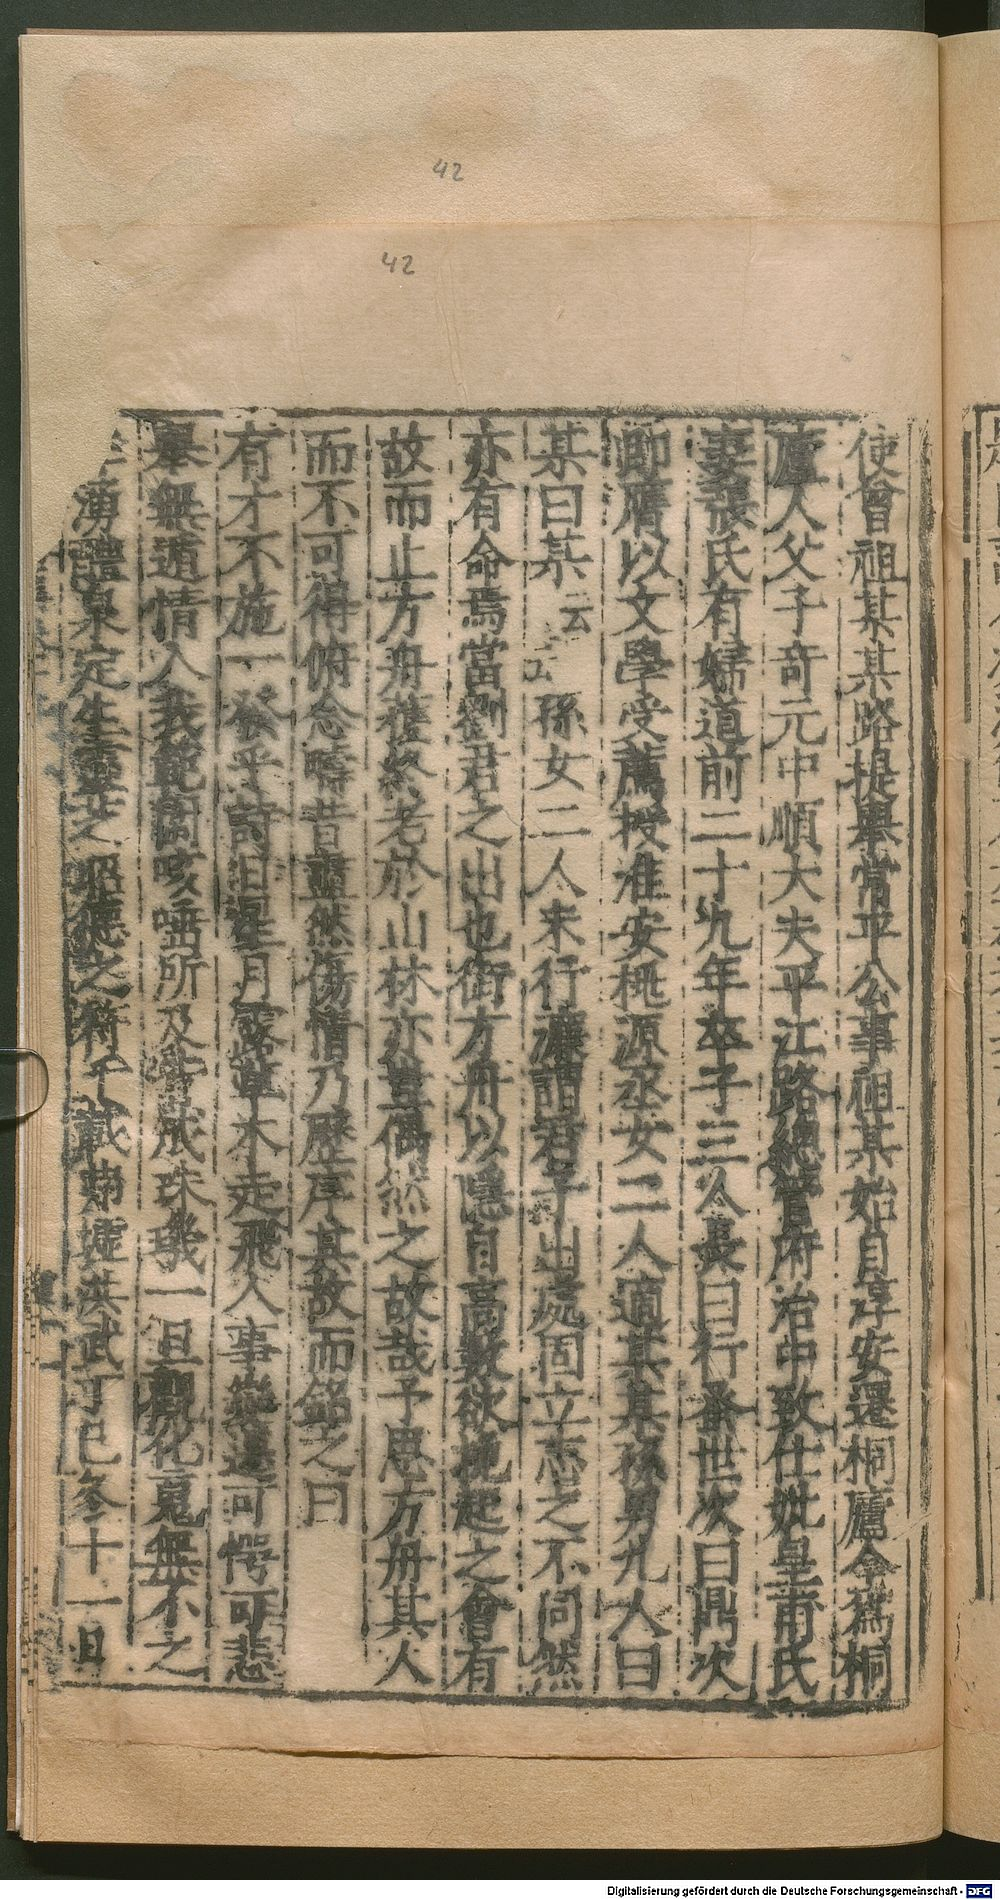 42
42
使曾祖某某路提舉常平公事祖某始自淳安還桐廬今爲桐
廬人父子奇元中順大夫平江路總管府治中致仕妣皇甫氏
妻張氏有婦道前二十九年卒子三人長曰行蚤世次曰鼎次
即膺以文學受薦授淮安桃源丞女二人適某某孫男九人曰
某曰某云云孫女二人未行濂謂君子出處固立志之不同然
亦有命焉當劉君之出也衛方舟以隱自高數欲挽起之會有
故而止方舟穫終老於山林亦豈偶然之故哉予思方舟其人
而不可得俯念疇昔盡然傷情乃歷序其故而銘之曰
有才不施一發乎詩日星月露草木走飛人事變遷可愕可悲
舉無遁情入我範圍咳唾所及皆成珠璣一旦觀化鬼無不之
湧醴泉定生靈芝昭德之符千載勿墟洪武丁巳冬十一日
Digitalisierung gefördert durch die Deutsche Forschungsgemeinschaft - DFG